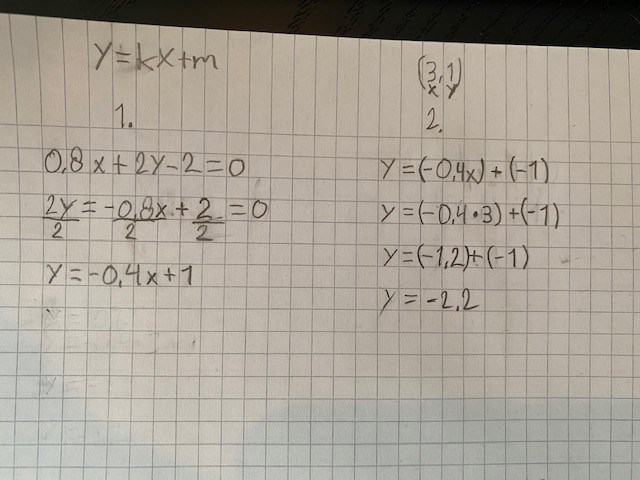 y=kx+m
1.
0,8x+2y-2=0
2y/2=-0,8x/2+2/2=0
y=-0,4x+1
(3,1)
x y
2.
y=(-0,4x)+(-1)
y=(-0,4•3)+(-1)
y=(-1,2)+(-1)
y=-2,2